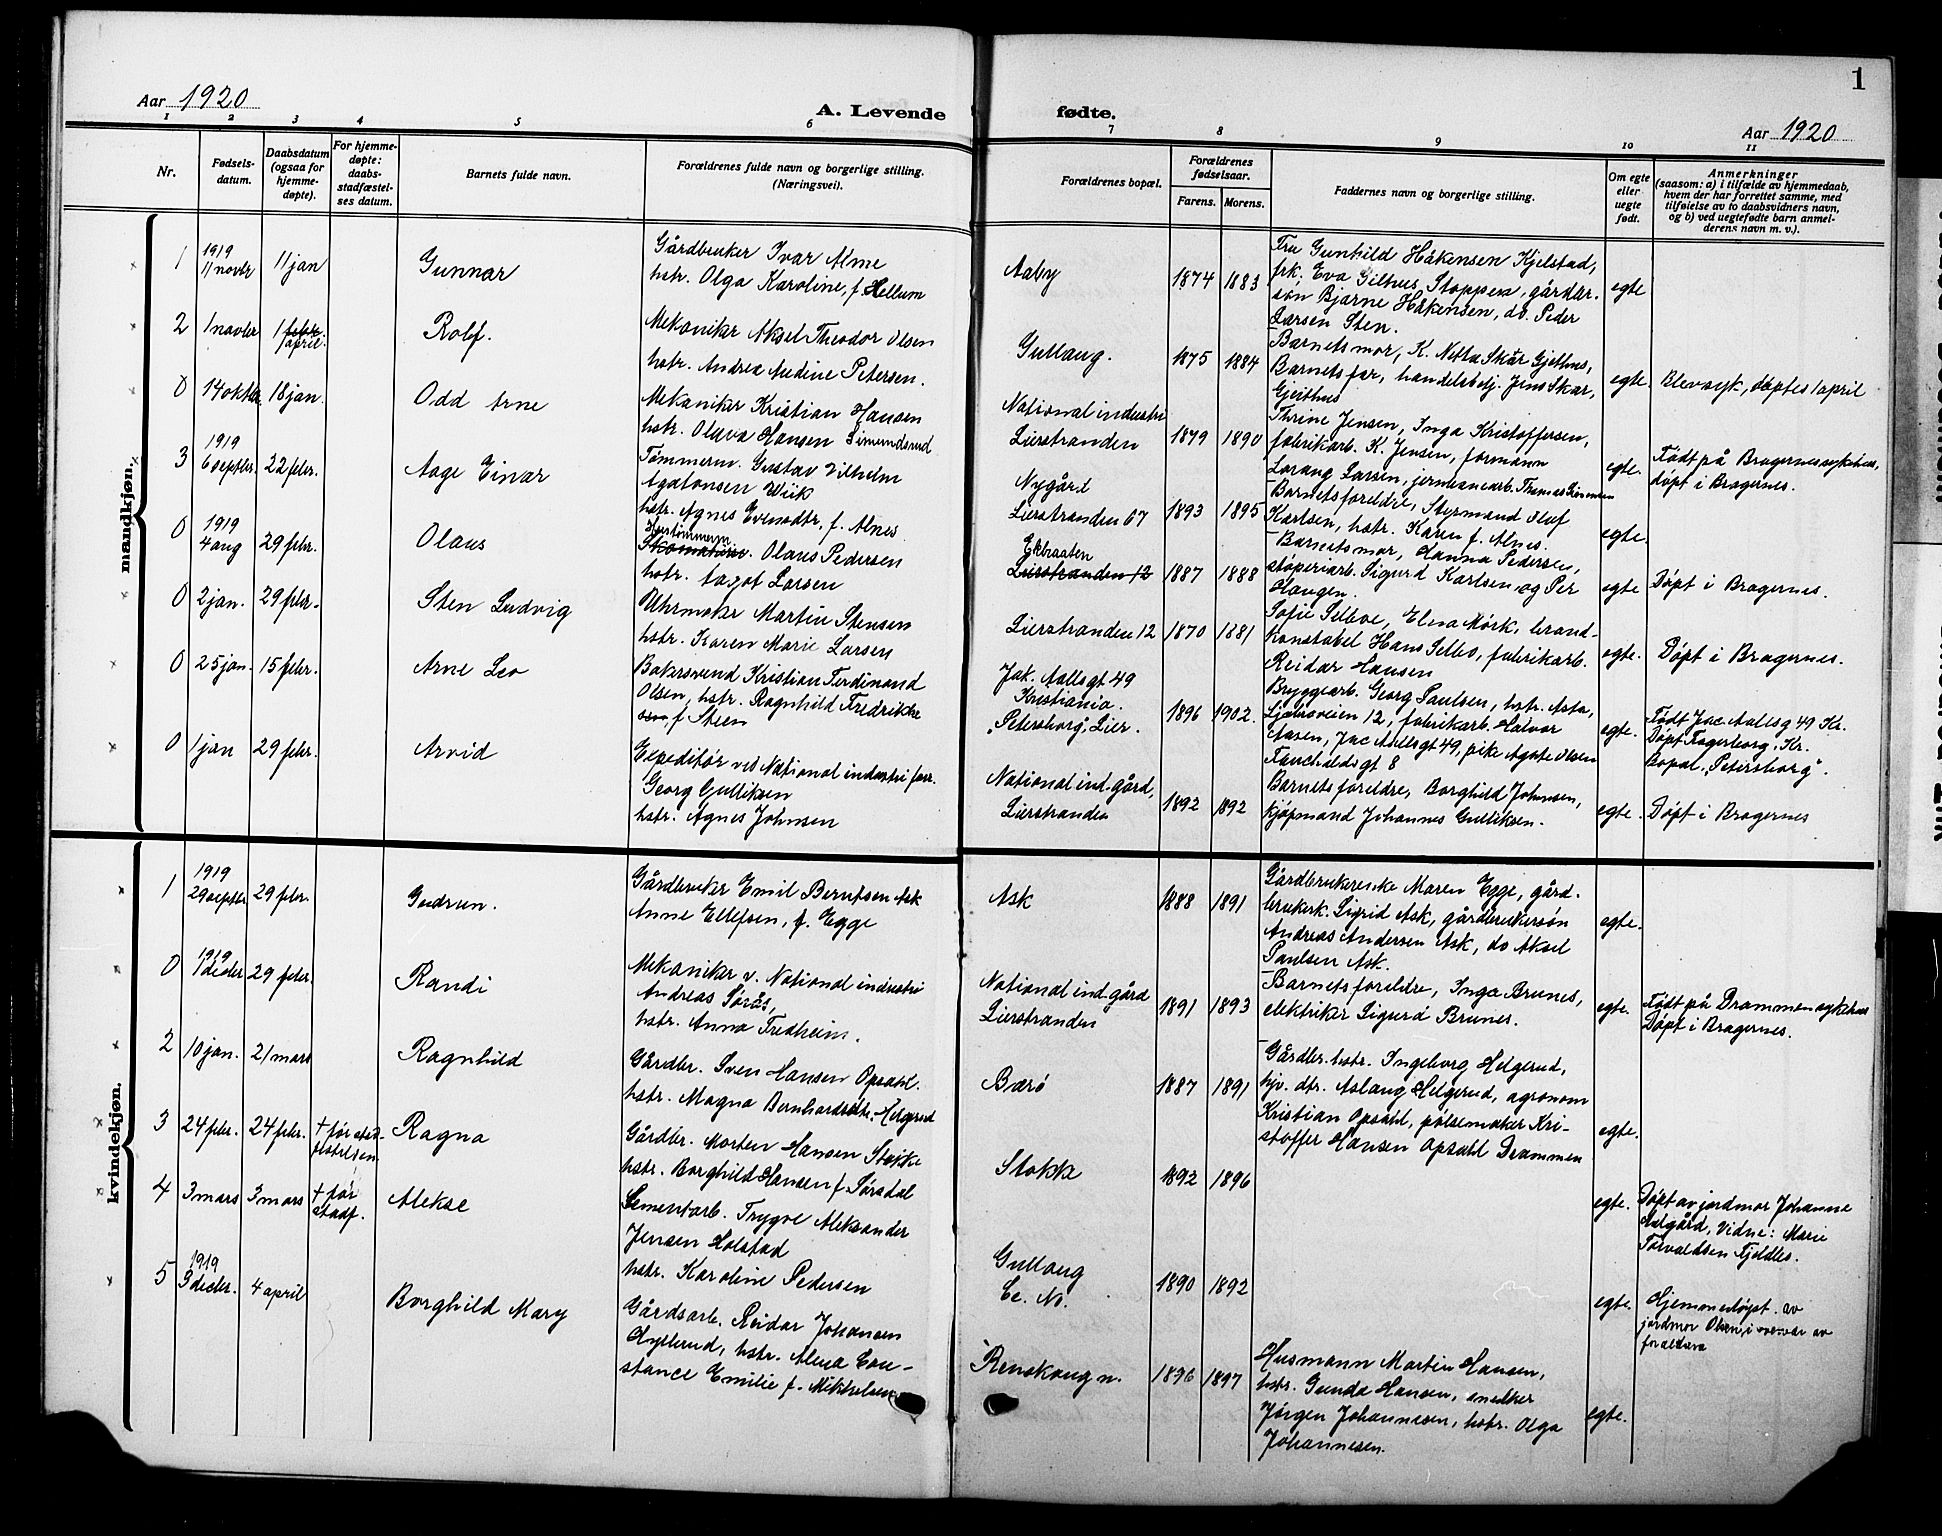 1
Aar 1920
A. Levende
fødte.
Aar 1920
1 2 3 4 5 6 7 8 9 10 11
Nr.
Fødsels-
datum.
Daabsdatum
(ogsaa for
hjemme-
døpte).
For hjemme-
døpte:
daabs-
stadfæstel-
ses datum.
Barnets fulde navn.
Forældrenes fulde navn og borgerlige stilling.
(Næringsvei).
Forældrenes bopæl.
Forældrenes
fødselsaar.
Farens. Morens.
Faddernes navn og borgerlige stilling.
Om egte
eller
uegte
født.
Anmerkninger
(saasom: a) i tilfælde av hjemmedaab,
hvem der har forrettet samme, med
tilføielse av to daabsvidners navn,
og b) ved uegtefødte barn anmel-
derens navn m. v.).
mandkjøn.
1
1919
11 novbr
11 jan
Gunnar
Gårdbruker Ivar Alme
hstr. Olga Karoline, f. Hellum
Aaby
1874 1883
Fru Gunhild Håkensen Kjelstad,
frk. Eva Gilhus, Stoppen, gårdbr.
søn Bjarne Håkensen, do. Peder
Larsen Sten.
egte
2
1 novbr
1 febr.
april.
Rolf.
Mekaniker Aksel Theodor Olsen
hstr. Andrea Audine Petersen.
Gullaug.
1875 1884
Barnets mor, K. Netta Skår Gjethus,
Barnets far, handelsbetj. Jens Skar,
Gjeithus
egte.
Blev syk, døptes 1 april
0
14 oktbr.
18 jan.
Odd Arne
Mekaniker Kristian Hansen
hstr. Olava Hansen Simundsrud
National industri
Lierstranden
1879 1890
Thrine Jensen, Inga Kristoffersen,
fabrikarb. K. Jensen, formann
Larsen, jernbanearb. Thomas
egte.
Født på Bragernes sykehus,
døpt i Bragernes.
3
1919
6 septbr.
22 febr.
Aage Einar
Tømmerm. Gustav Vilhelm
Agatonsen Wiik
hstr. Agnes Evensdtr, f. Alnes
Nygård
Lierstranden 67
1893 1895
Barnets foreldre, Styrmand Oluf
Karlsen, hstr. Karen f. Alnes.
egte.
0
1919
4 aug
29 febr.
Olaus
Hustømmerm.
Olaus Pedersen
hstr. Aagot Larsen
Ekbraaten
Lierstranden 12
1887 1888
Barnets mor, Hanna Pedersen,
støperiarb. Sigurd Karlsen, og Per
Haugen.
egte
Døpt i Bragernes.
0
2 jan.
29 febr.
Sten Ludvig
Uhrmaker Martin Stensen
hstr. Karen Marie Larsen
Lierstranden 12
1870 1881
Sofie Selbo, Elna Mørk, brand-
konstabel Hans Selbo, fabrikarb.
Reidar Hansen
egte.
Døpt i Bragernes.
0
25 jan.
15 febr.
Arne Leo
Bakersvend Kristian Ferdinand
Olsen, hstr. Ragnhild Fredrikke
f. Steen
Jak. Aallsgt 49
Kristiania.
"Petersborg", Lier.
1896 1902.
Bryggearb. Georg Paulsen, hstr. Asta,
Ljabroveien 12, fabrikarb. Halvor
Aasen, Jac Aallsgt 49, pike Agate Olsen
Fauchaldsgt 8
egte.
Født Jac Aallsg 49 Kr.
Døpt Fagerborg, Kr.
Bopæl "Petersborg".
0
1 jan
29 febr.
Arvid
Expeditør ved National industri
Georg Gulliksen
hstr. Agnes Johnsen
National ind. gård,
Lierstranden
1892 1892
Barnets foreldre, Borghild Johnsen,
kjøpmand Johannes Gulliksen.
egte.
Døpt i Bragernes
kvindekjøn.
1
1919
29 septbr
29 febr.
Gudrun.
Gårdbruker Emil Berntsen Ask
Anne Ellefsen, f. Egge
Ask
1888 1891
Gårdbrukerenke Maren Egge, gård-
brukerk. Sigrid Ask, gårdbrukersøn
Andreas Andersen Ask, do Aksel
Paulsen Ask.
egte.
0
1919
1 decbr
29 febr.
Randi
Mekaniker v. National industri
Andreas Sørås,
hstr. Anna Fredheim.
National ind. gård
Lierstranden
1891 1893
Barnets foreldre, Inga Brunes,
elektriker Sigurd Brunes.
egte.
Født på Drammen sykehus
Døpt i Bragernes.
2
10 jan.
21 mars
Ragnhild
Gårdbr. Sven Hansen Opsahl.
hstr. Magna Bernhardsdtr. Helgerud
Bærø
1887 1891
Gårdbr. hstr. Ingeborg Helgerud,
hjv. dtr. Aslaug Helgerud, agronom
Kristian Opsahl, pølsemaker Kri-
stoffer Hansen Opsahl Drammen
egte.
3
24 febr.
24 febr.
† før stad-
festelsen.
Ragna
Gårdbr. Morten Hansen Stokke
hstr. Borghild Hansen f. Sørsdal
Stokk
1892 1896
egte.
Døpt av jordmor Johanne
Vidne: Marie
Torvaldsen Fjeldbs.
4
3 mars
3 mars
† før
stadf.
Alekse
Sementarb. Trygve Aleksander
Jensen Holstad
hstr. Karoline Pedersen
Gullaug
Ce. No.
1890 1892
egte.
Hjemmedøpt av
jordmor Olsen i overvær av
foreldrene
5
1919
3 decbr.
4 april
Borghild Mary
Gårdsarb. Reidar Johansen
hstr. Alma Con-
stance Emilie f. Mikkelsen
Renskaug n.
1896 1897
Husmann Martin Hansen,
hstr. Gunda Hansen, snedker
Jørgen Johannesen, hstr. Olga
Johannesen.
egte.